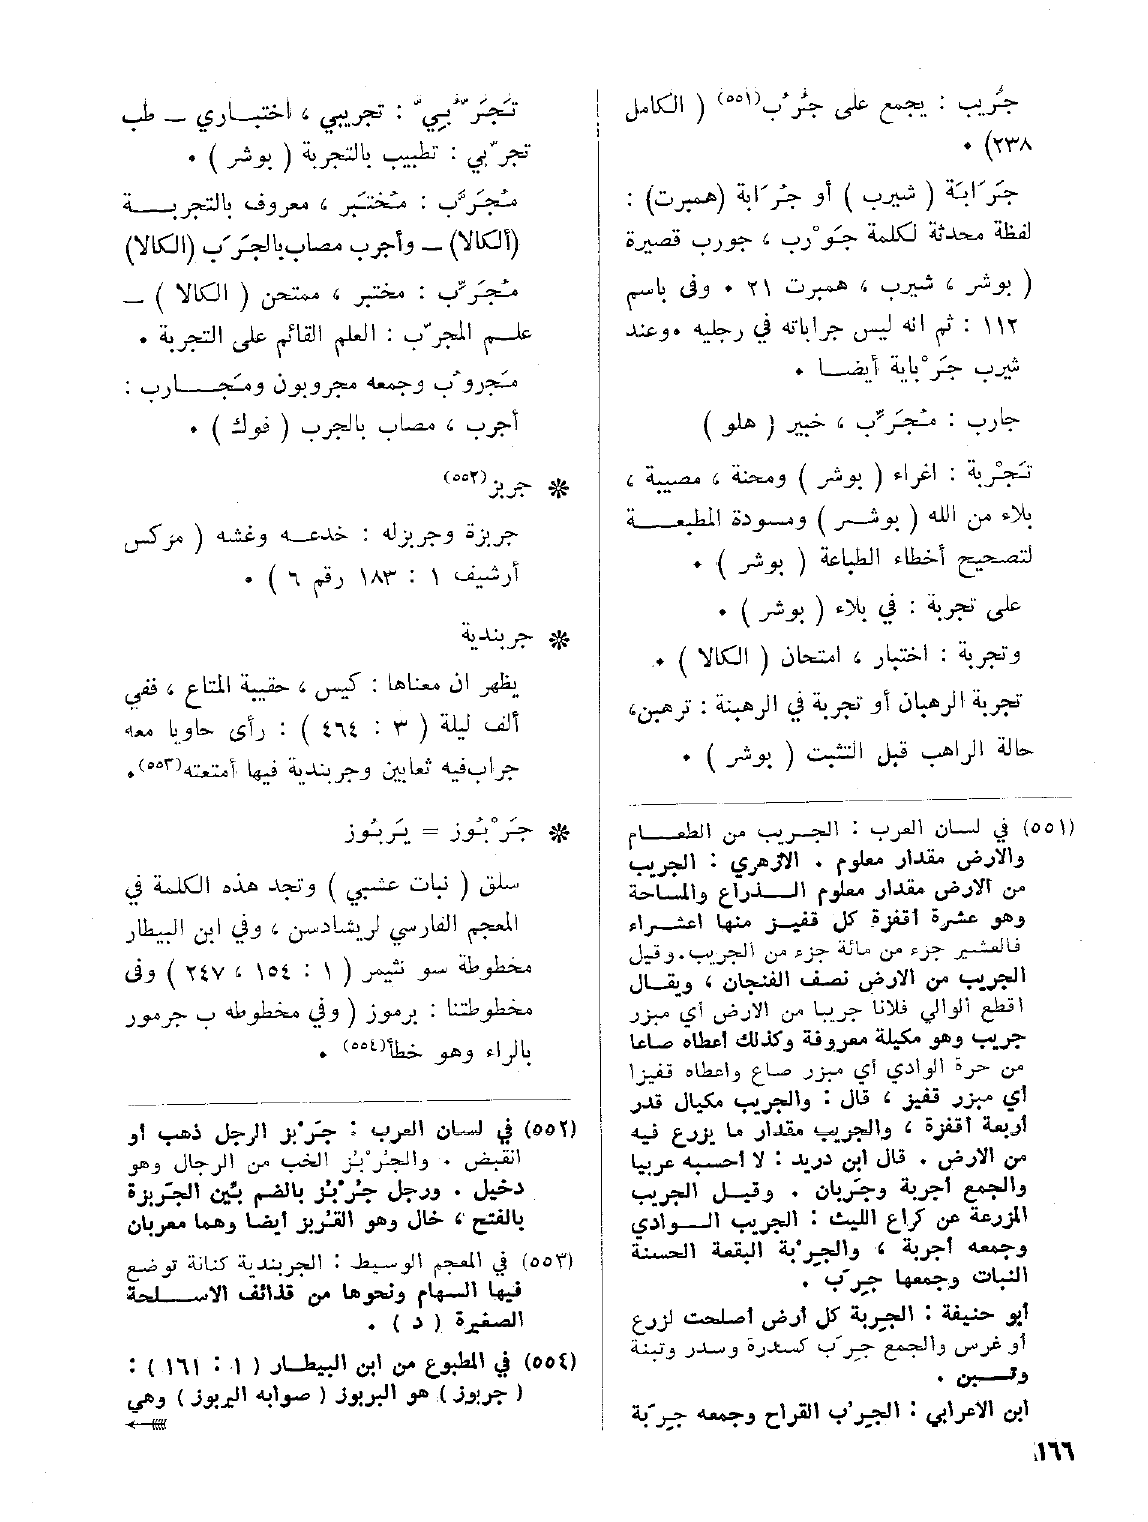 جَرِيب : يجمع على جُرُب(٥٥١) ( الكامل
٢٣٨) .
جَرَابَة ( شيرب ) أو جُرَابة (همبرت) :
لفظة محدثة لكلمة جَوْرب ، جورب قصيرة
( بوشر ، شيرب ، همبرت ٢١ . وفي باسم
١١٢ : ثم انه ليس جراباته في رجليه .وعند
شيرب جَرْباية أيضا .
جارب : مُجَرِّب ، خبير ( هلو )
تَجْرِبة : اغراء ( بوشر ) ومحنة ، مصيبة ،
بلاء من الله ( بوشر ) ومسودة المطبعة
لتصحيح أخطاء الطباعة ( بوشر ) .
على تجربة : في بلاء ( بوشر ) .
وتجربة : اختبار ، امتحان ( الكالا ) .
تجربة الرهبان أو تجربة في الرهبنة : ترهبن،
حالة الراهب قبل التثبت ( بوشر ) .
(٥٥١) في لسان العرب : الجريب من الطعام
والارض مقدار معلوم . الازهري : الجريب
من الارض مقدار معلوم الذراع والمساحة
وهو عشرة أقفزة كل قفيز منها اعشراء
فالعشير جزء من مائة جزء من الجريب.وقيل
الجريب من الارض نصف الفنجان ، ويقال
اقطع الوالي فلانا جريبا من الارض أي مبزر
جريب وهو مكيلة معروفة وكذلك أعطاه صاعا
من حرة الوادي أي مبزر صاع واعطاه قفيزا
أي مبزر قفيز ، قال : والجريب مكيال قدر
أربعة أقفزة ، والجريب مقدار ما يزرع فيه
من الارض . قال ابن دريد : لا أحسبه عربيا
والجمع أجربة وجُربان . وقيل الجريب
المزرعة عن كراع الليث : الجريب الوادي
وجمعه أجربة ، والجِرْبة البقعة الحسنة
النبات وجمعها جِرَب .
أبو حنيفة : الجربة كل أرض أصلحت لزرع
أو غرس والجمع جِرَب كسدرة وسدر وتبنة
وتبن .
ابن الاعرابي : الجِرْب القراح وجمعه جِرَبة
١٦٦
تَجَرُّبِيّ : تجريبي ، اختباري — طب
تجرّبي : تطبيب بالتجربة ( بوشر ) .
مُجَرَّب : مُختَبَر ، معروف بالتجربة
(ألكالا) — وأجرب مصاب بالجَرَب (الكالا)
مُجَرِّب : مختبر ، ممتحن ( الكالا ) —
علم المجرّب : العلم القائم على التجربة .
مَجروب وجمعه مجروبون ومَجارب :
أجرب ، مصاب بالجرب ( فوك ) .
❊ جربز(٥٥٢)
جربزة وجربزله : خدعه وغشه ( مركس
أرشيف ١ : ١٨٣ رقم ٦ ) .
❊ جربندية
يظهر ان معناها : كيس ، حقيبة المتاع ، ففي
ألف ليلة ( ٣ : ٤٦٤ ) : رأى حاويا معه
جراب فيه ثعابين وجربندية فيها أمتعته(٥٥٣).
❊ جَرْبُوز = يَربُوز
سلق ( نبات عشبي ) وتجد هذه الكلمة في
المعجم الفارسي لريشادسن ، وفي ابن البيطار
مخطوطة سو نثيمر ( ١ : ١٥٤ ، ٢٤٧ ) وفي
مخطوطتنا : يرموز ( وفي مخطوطه ب جرمور
بالراء وهو خطأ(٥٥٤) .
(٥٥٢) في لسان العرب : جَرْبز الرجل ذهب أو
انقبض . والجُرْبُز الخب من الرجال وهو
دخيل . ورجل جُرْبُز بالضم بَيِّن الجَربزة
بالفتح ، خال وهو القُربز أيضا وهما معربان
(٥٥٣) في المعجم الوسيط : الجربندية كنانة توضع
فيها السهام ونحوها من قذائف الاسلحة
الصغيرة ( د ) .
(٥٥٤) في المطبوع من ابن البيطار ( ١ : ١٦١ ) :
( جربوز ) هو البربوز ( صوابه اليربوز ) وهي